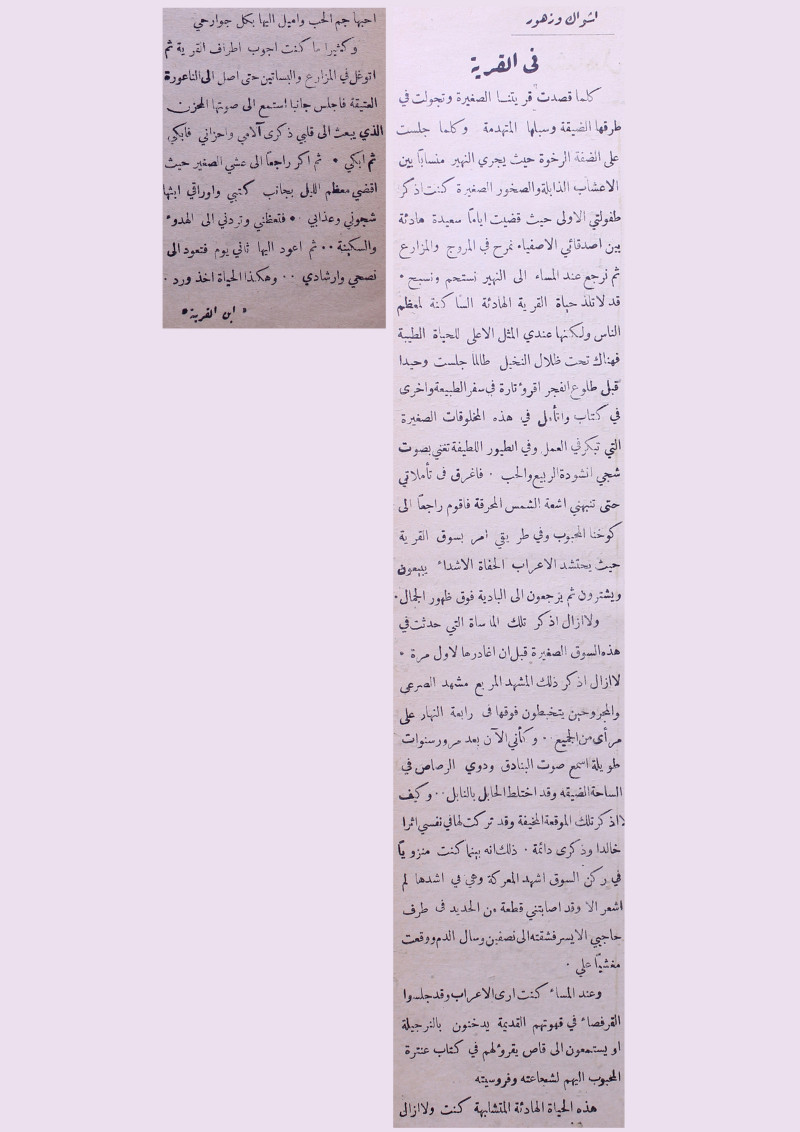 اشواك وزهور
فى القرية
كلما قصدت قريتنا الصغيرة وتجولت في
طرقها الضيقة وسبلها المتهدمة وكلما جلست
على الضفة الرخوة حيث يجري النهير منسابا بين
الاعشاب الذابلة والصخور الصغيرة كنت اذكر
طفولتي الاولى حيث قضيت اياما سعيدة هادئة
بين اصدقائي الاصفياء نمرح في المروج والمزارع
ثم نرجع عند المساء الى النهير نستحم ونسبح .
قد لا تلذ حياة القرية الهادئة الساكنة لمعظم
الناس ولكنها عندي المثل الاعلى للحياة الطيبة
فهناك تحت ظلال النخيل طالما جلست وحيدا
قبل طلوع الفجر اقرؤ تارة في سفر الطبيعة واخرى
في كتاب واتأمل في هذه المخلوقات الصغيرة
التي تبكر في العمل وفي الطيور اللطيفة تغني بصوت
شجي انشودة الربيع والحب . فاغرق فى تأملاتي
حتى تنبهني اشعة الشمس المحرقة فاقوم راجعا الى
كوخنا المحبوب وفي طريقي امر بسوق القرية
حيث يحتشد الاعراب الحفاة الاشداء يبيعون
ويشترون ثم يرجعون الى البادية فوق ظهور الجمال.
ولا ازال اذكر تلك الماساة التي حدثت في
هذه السوق الصغيرة قبل ان اغادرها لاول مرة .
لا ازال اذكر ذلك المشهد المريع مشهد الصرعى
والمجروحين يتخبطون فوقها فى رابعة النهار على
مرأى من الجميع .. وكأني الآن بعد مرور سنوات
طويلة اسمع صوت البنادق ودوي الرصاص في
الساحة الضيقه وقد اختلط الحابل بالنابل .. وكيف
لا اذكر تلك الموقعة المخيفة وقد تركت لها في نفسي اثرا
خالدا وذكرى دائمة . ذلك انه بينما كنت منزويا
في ركن السوق اشهد المعركة وهي في اشدها لم
اشعر الا وقد اصابتني قطعة من الحديد فى طرف
حاجبي الايسر فشقته الى نصفين وسال الدم ووقعت
مغشيا علي .
وعند المساء كنت ارى الاعراب وقد جلسوا
القرفصاء في قهوتهم القديمة يدخنون بالنرجيلة
او يستمعون الى قاص يقرؤ لهم في كتاب عنترة
المحبوب اليهم لشجاعته وفروسيته
هذه الحياة الهادئة المتشابهة كنت ولا ازالى
احبها جم الحب واميل اليها بكل جوارحي
وكثيرا ما كنت اجوب اطراف القرية ثم
اتوغل في المزارع والبساتين حتى اصل الى الناعورة
العتيقة فاجلس جانبا استمع الى صوتها المحزن
الذي يبعث الى قلبي ذكرى آلامي واحزاني فابكي
ثم ابكي . ثم اكر راجعا الى عشي الصغير حيث
اقضي معظم الليل بجانب كتبي واوراقي ابثها
شجوني وعذابي . فتعظني وتردني الى الهدوء
والسكينة .. ثم اعود اليها ثاني يوم فتعود الى
نصحي وارشادي .. وهكذا الحياة اخذ ورد .
« ابن القرية »